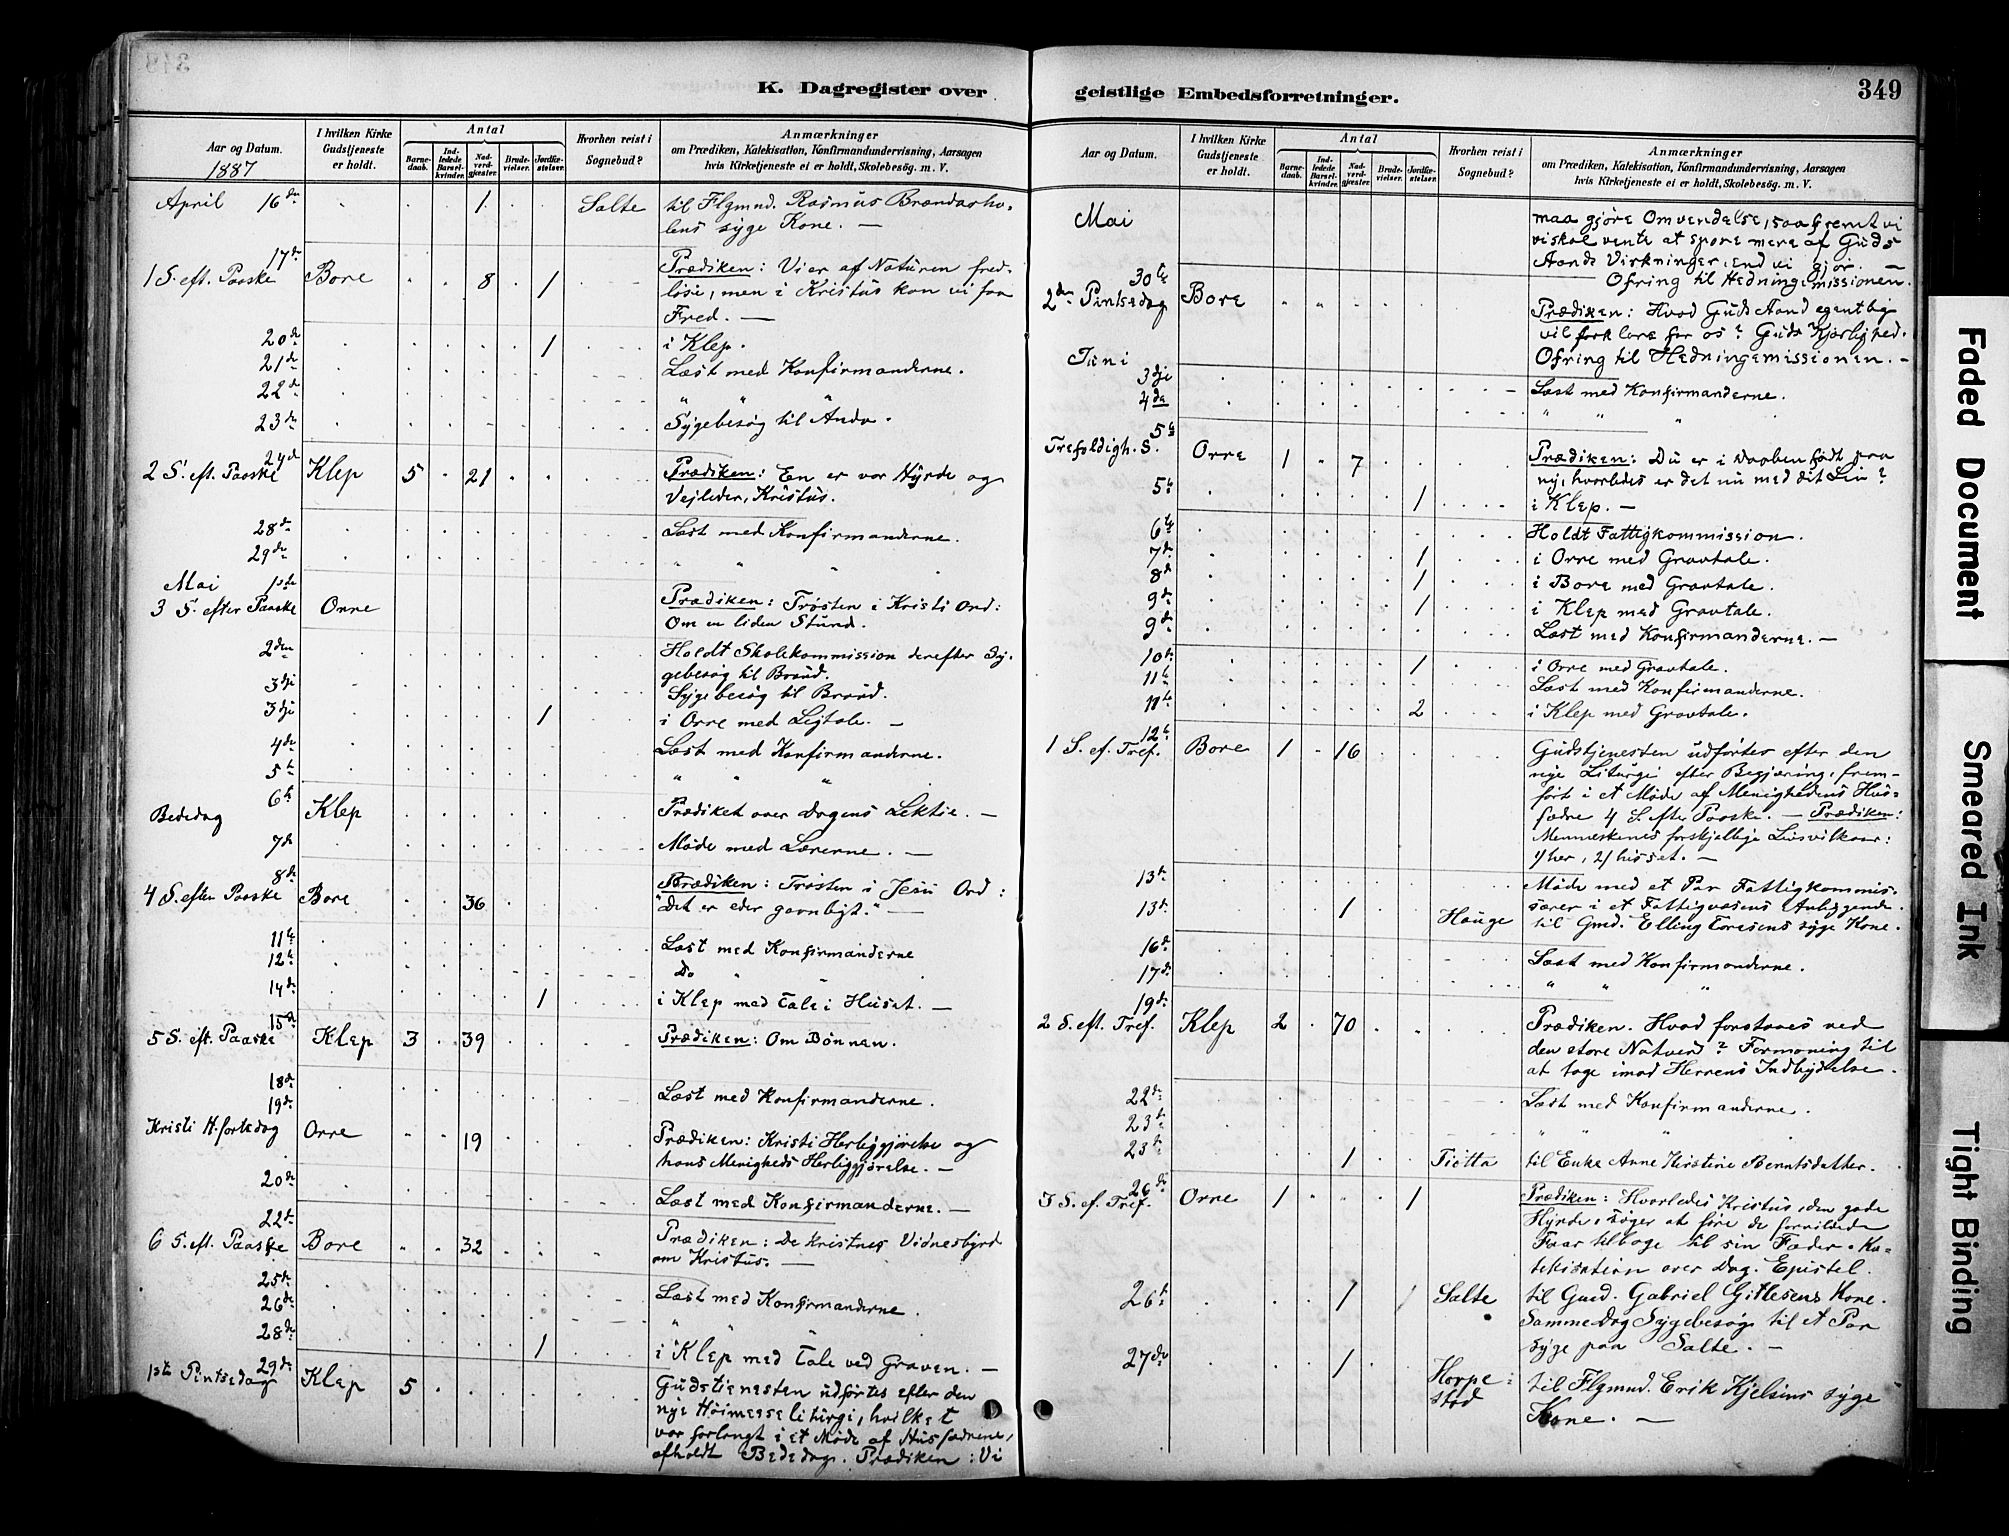 K. Dagregister over
Aar og Datum. I hvilken Kirke Gudstjeneste er holdt. Antal Barnedaab. Indledede Barselkvinder. Nadverdgjester. Brudevielser. Jordfæstelser. Hvorhen reist i Sognebud? Anmærkninger om Prædiken, Katekisation, Konfirmandundervisning, Aarsagen hvis Kirketjeneste ei er holdt, Skolebesøg. m. V.
1887
April 16de 1 Salte til Flgmnd. Rasmus Brændasho-
lens syge Kone. —
17de
1 S. eft. Paaske Bore 8 1 Prædiken: Vi er af Naturen fred-
løse, men i Kristus kan vi faa
Fred. —
20de 1 i Klep.
21de Læst med Konfirmanderne.
22de " " "
23de Sygebesøg til Anda.
24de
2 S. eft. Paaske Klep 5 21 Prædiken: En er vor Hyrde og
Vejleder, Kristus.
28de Læst med Konfirmanderne.
29de " " "
Mai 1ste
3 S. efter Paaske Orre Prædiken: Trøsten i Kristi Ord:
Om en liden Stund.
2den Holdt Skolekommission derefter Sy-
gebesøg til Braud.
3dje Sygebesøg til Braud.
3dje 1 i Orre med Ligtale. —
4de Læst med Konfirmanderne.
5te " " "
6te
Bededag Klep Prædiket over Dagens Lektie. —
7de Møde med Lærerne. —
8de
4 S. efter Paaske Bore 36 Prædiken: Trøsten i Jesu Ord:
"Det er eder gavnligt." —
11te Læst med Konfirmanderne
12te Do " "
14de 1 i Klep med Tale i Huset. —
15de
5 S. eft. Paaske Klep 3 39 Prædiken: Om Bønnen.
18de Læst med Konfirmanderne.
19de
Kristi H.fartsdag Orre 19 Prædiken: Kristi Herliggjørelse og
hans Menigheds Herliggjørelse. —
20de Læst med Konfirmanderne. —
22de
6 S. eft. Paaske Bore 32 Prædiken: De Kristnes Vidnesbyrd
om Kristus. —
25de Læst med Konfirmanderne.
26de " " "
28de 1 i Klep med Tale ved Graven. —
29de
1ste Pintsedag Klep 5 Gudstjenesten udførtes efter den
nye Høimesseliturgi, hvilket
var forlangt i et Møde af Husfædrene,
afholdt Bededag. Prædiken: Vi
geistlige Embedsforretninger.
349
Aar og Datum. I hvilken Kirke Gudstjeneste er holdt. Antal Barnedaab. Indledede Barselkvinder. Nadverdgjester. Brudevielser. Jordfæstelser. Hvorhen reist i Sognebud? Anmærkninger om Prædiken, Katekisation, Konfirmandundervisning, Aarsagen hvis Kirketjeneste ei er holdt, Skolebesøg. m. V.
Mai maa gjøre Omvendelse, saafremt vi
vi skal vente at spore mere af Guds
Aands Virkninger, end vi gjør. —
Ofring til Hedningemissionen.
30te
2den Pintsedag Bore Prædiken: Hvad Guds Aand egentlig
vil forklare for os? Guds Kjærlighed.
Ofring til Hedningemissionen. —
Juni
3dje Læst med Konfirmanderne.
4de " " "
5te
Trefoldigh. S. Orre 1 7 Prædiken: Du er i Daaben født paa
ny, hvorledes er det nu med dit Liv?
5te 1 i Klep. —
6te Holdt Fattigkommission.
7de 1 i Orre med Gravtale.
8de 1 i Bore med Gravtale.
9de 1 i Klep med Gravtale.
9de Læst med Konfirmanderne. —
10de 1 i Orre med Gravtale.
11te Læst med Konfirmanderne.
11te 2 i Klep med Gravtale.
12te
1 S. ef. Tref. Bore 1 16 Gudstjenesten udførtes efter den
nye Liturgi efter Begjæring, frem-
ført i et Møde af Menighedens Hus-
fædre 4 S. efter Paaske. — Prædiken:
Menneskenes forskjellige Livsvilkaar:
1/ her, 2/ hisset. —
13de Møde med et Par Fattigkommis-
særer i et Fattigvæsens Anliggende.
13de 1 Hauge til Gmd. Elling Toresens syge Kone.
16de Læst med Konfirmanderne.
17de " " "
19de
2 S. eft. Tref. Klep 2 70 Prædiken. Hvad forstaaes ved
den store Natverd? Formaning til
at tage imod Herrens Indbydelse.
22de Læst med Konfirmanderne.
23de " " "
23de 1 Tjøtta til Enke Anne Kirstine Berntsdatter.
26de
3 S. ef. Tref. Orre 1 1 Prædiken: Hvorledes Kristus, den gode
Hyrde, søger at føre de forvildede
Faar tilbage til sin Fader. Ka-
tekisation over Dag. Epistel.
26de 1 Salte til Gmd. Gabriel Gitlesens Kone.
Samme Dag Sygebesøg til et Par
syge paa Salte. —
27de 1 Horpe-
stad til Flgmnd. Erik Kjelsens syge
Kone. —
Faded Document
Smeared Ink
Tight Binding